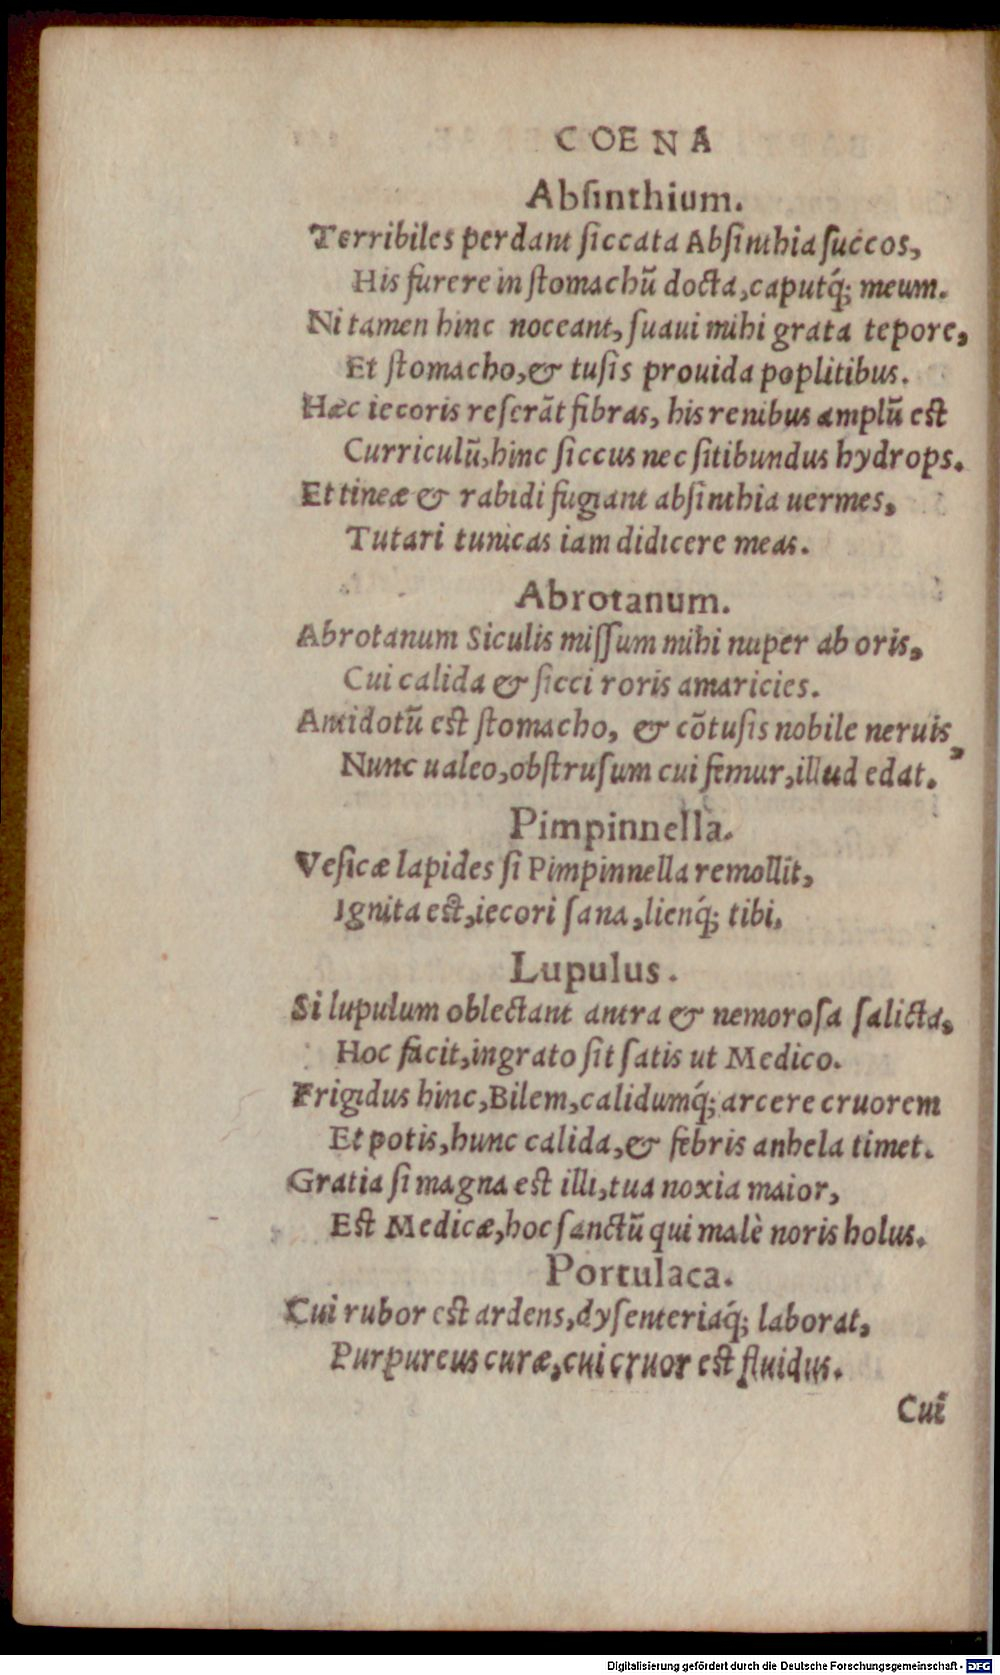 COENA
Absinthium.
Terribiles perdant ſiccata Abſinthia ſuccos,
His furere in ſtomachū docta, caputq́; meum.
Ni tamen hinc noceant, ſuaui mihi grata tepore,
Et ſtomacho, & tuſis prouida poplitibus.
Hæc iecoris reſerāt fibras, his renibus amplū est
Curriculū, hinc ſiccus nec ſitibundus hydrops.
Et tineæ & rabidi fugiant abſinthia uermes,
Tutari tunicas iam didicere meas.
Abrotanum.
Abrotanum Siculis miſſum mihi nuper ab oris,
Cui calida & ſicci roris amaricies.
Antidotū est ſtomacho, & cōtuſis nobile neruis,
Nunc ualeo, obſtruſum cui femur, illud edat.
Pimpinnella.
Veſicæ lapides ſi Pimpinnella remollit,
Ignita est, iecori ſana, lienq́; tibi,
Lupulus.
Si lupulum oblectant antra & nemoroſa ſalicta,
Hoc facit, ingrato ſit ſatis ut Medico.
Frigidus hinc, Bilem, calidumq́; arcere cruorem
Et potis, hunc calida, & febris anhela timet.
Gratia ſi magna est illi, tua noxia maior,
Est Medicæ, hoc ſanctū qui malè noris holus.
Portulaca.
Cui rubor est ardens, dyſenteriaq́; laborat,
Purpureus curæ, cui cruor est fluidus.
Cui
Digitalisierung gefördert durch die Deutsche Forschungsgemeinschaft - DFG